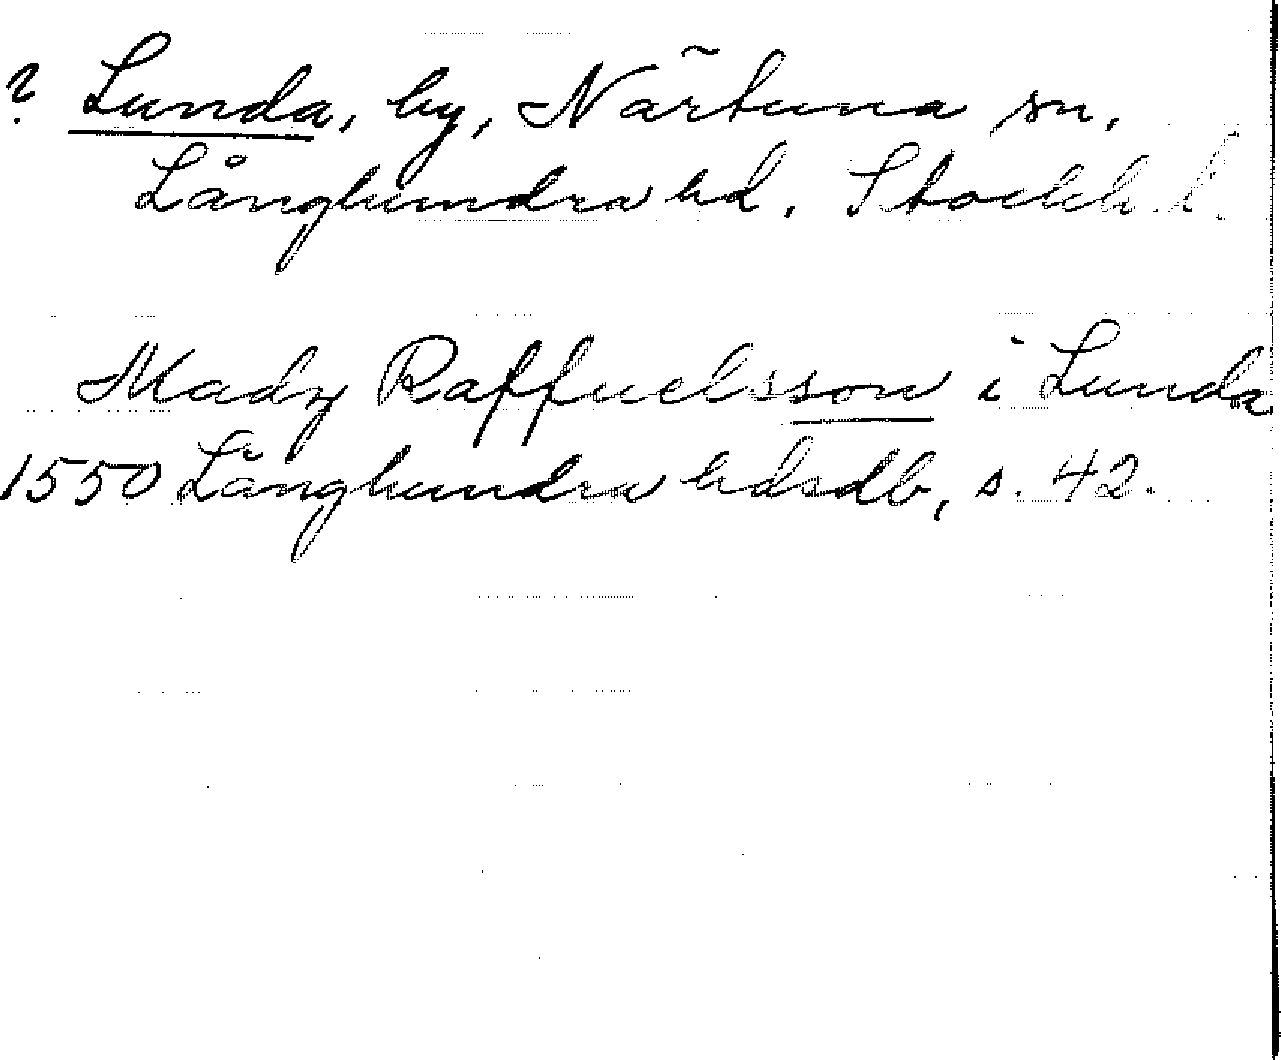 ? Lunda, by, Närtuna sn,
Långhundra hd. Stockh. l.
Mady Raffuelsson i Lunda
1550 Långhundra hdsdb, s. 42.